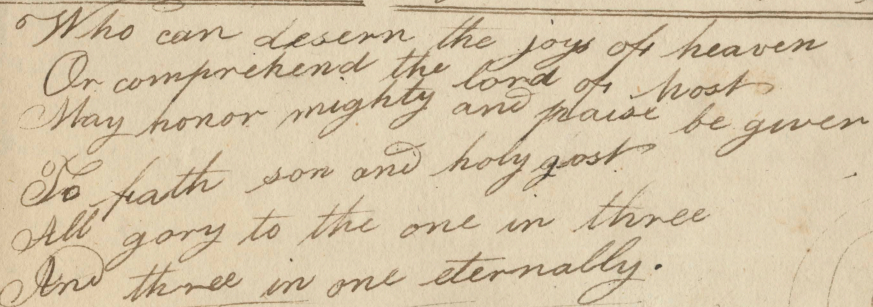 Who can desern the joys of heaven
Or comprehend the lord of host
May honor mighty and praise be given
To fath son and holy gost
All gory to the one in three
And three in one eternally.